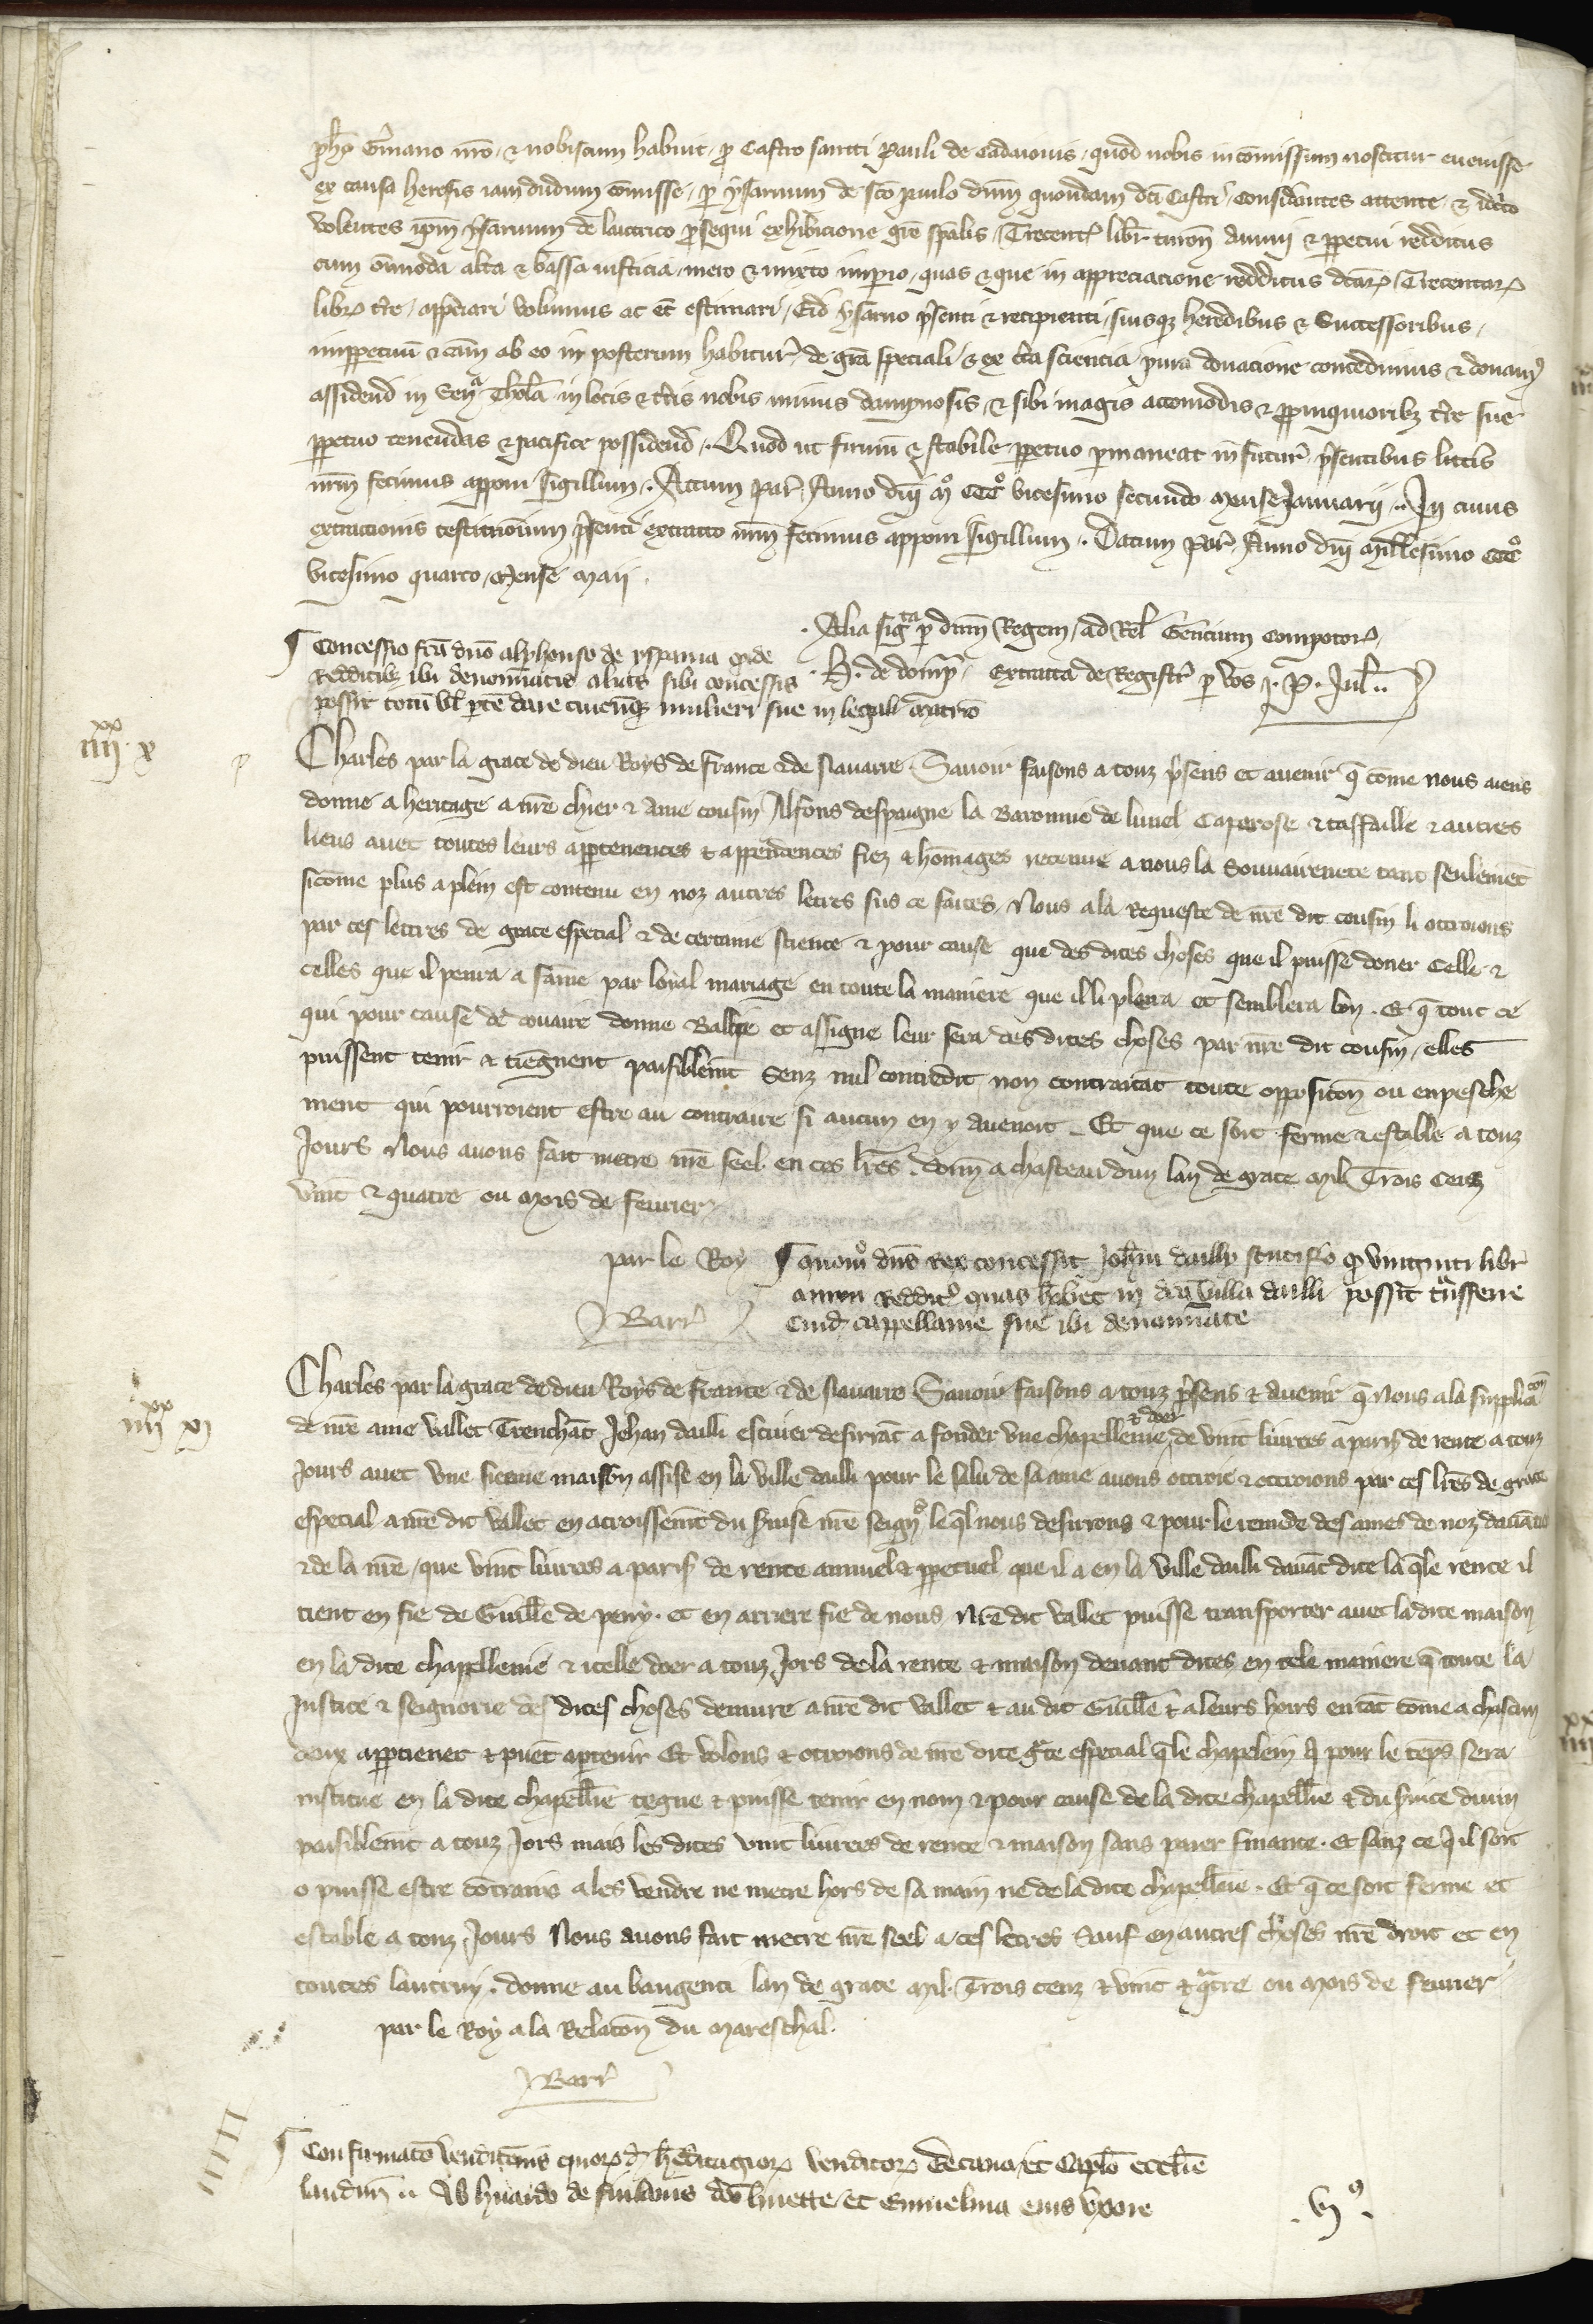 germano nostro & nobiscum habuit pro Castro sancti Pauli de Cadaiovis quod nobis in comissum noscitur evenisse
ex causa heresis iamdudum comisse per ysarnum de sco paulo dnm quondam dci Castri Considantes attente & idcirco
volentes ipm ysarnum de lautrico psequi exhibicione gre spalis Trecent libr turon annui & ppetui redditus
cum omnioda alta & bassa iusticia mero & mixto imperio quas & que in appreciacione redditus dcar Trecentar
libr tre appciari volumus ac et estimari Eid ysarno psenti & recipienti suisq heredibus & Successoribus
imppetuu & cam ab eo in posterum habitur de gra speciali & ex cta sciencia pura donacione concedimus & donam
assidend in Sen Thol in locis & tris nobis minus dampnosis & sibi magis accomodis & ppinquioribz tre sue
ppetuo tenendas & pacifice possidend Quod ut firmu & stabile ppetuo pmaneat in futur psentibus litts
nrm fecimus apponi sigillum Actum Par Anno dni mo CCCo vicesimo secundo Mense Januarii In cuius
extractionis testimonium psenti extracto nrm fecimus apponi Sigillum Datum Par Anno dni Millesimo CCCo
vicesimo quarto Mense Maii
Alia sigta p dnm Regem ad Rel Gentium Compotor
H. de domp extracta de Registr p vos J. P. Jul
Concessio fca dno alphonso de yspania qd de
Redditibz ibi denominatis alias sibi concessis
possit totu vl pte dare cuicumq mulieri sue in legali matrio
iiii xx x
Charles par la grace de dieu Roys de france & de Navarre Savoir faisons a touz psens et avenir q come nous aiens
donne a heritage a nre chier & ame cousin Alfons despaigne la Baronnie de lunel Caparose & taffaille & autres
lieus avec toutes leurs apptenences & appendences fiez & homages retenue a nous la Souvairenete tant seulement
sicome plus aplein est contenu en noz autres letres sus ce faites Nous ala Requeste de nre dit cousin li ottroions
par ces lettres de grace especial & de certaine science & pour cause que des dites choses que il puisse doner celle &
celles que il penra a fame par loial mariage en toute la maniere que il li plera et semblera bon Et q tout ce
qui pour cause de douaire donne Ballie et assigne leur sera des dites choses par nre dit cousin elles
puissent tenir & tiegnent paisiblemt Senz nul contredit non contraitat toute oppositon ou enpesche
ment qui pourroient estre au contraire si aucun en y avenoit Et que ce soit ferme & estable a touz
Jours Nous avons fait metre nre seel en ces lres donn a chasteaudun lan de grace Mil Trois Cenz
vint & quatre ou Mois de fevrier
par le Roy
Barr
quom dns rex concessit Johni dailly scutifero q viginti libr
annui Reddit quas hbet in dca villa dailli possit tasferre
cuid cappellanie sue ibi denominate
iiii xx xi
Charles par la grace de dieu Roys de france & de Navarre Savoir faisons a touz psens & avenir q Nous ala supplicacon
de nre ame vallet Trenchat Jehan dailli escuier desirrat a fonder une chapellenie & doer de vint livrees a paris de rente a touz
Jours avec une sieue maison assise en la ville dailli pour le salu de same avons ottroie & ottroions par ces lres de grace
especial a nre dit vallet en acroissemt du svise nre seigno leql nous desirrons & pour le remede des ames de noz devaciers
& de la nre que vint livrees a paris de rente annuel & ppetuel que il a en la ville dailli davat dite laqle rente il
tient en fie de Guille de peny et en arriere fie de nous Nre dit vallet puisse transporter avec ladite maison
en la dite chapellenie & icelle doer a touz Jors dela rente & maison devant dites en tele maniere q toute la
Justice & seignorie des dites choses demure a nre dit vallet & au dit Guille & a leurs hoirs entat come a chascun
deux apptienet & puet aptenir Et volons & otroions de nre dite gce especial q le chapelein q pour le teps sera
institue en la dite chapellie tegne & puisse tenir en nom & pour cause de la dite chapellie & du svice divin
paisiblemt a touz Jors mais les dites vint livrees de rente & maison sans paier finance Et sanz ce qil soit
o puisse estre cotrains a les vendre ne metre hors de sa main ne de ladite chapellie Et q ce soit ferme et
estable a touz Jours Nous avons fait metre nre seel a ces letres Sauf en autres choses nre droit et en
toutes lautruy donne au baugenci lan de grace Mil Trois cenz & vint & qatre ou Mois de fevrier
par le Roy a la Relacon du Mareschal
Barr
Confirmaco venditionis quorud heritagior venditor Decano et Caplo ecclie
laudun ab huardo de dco huette et Emmelina eius uxore